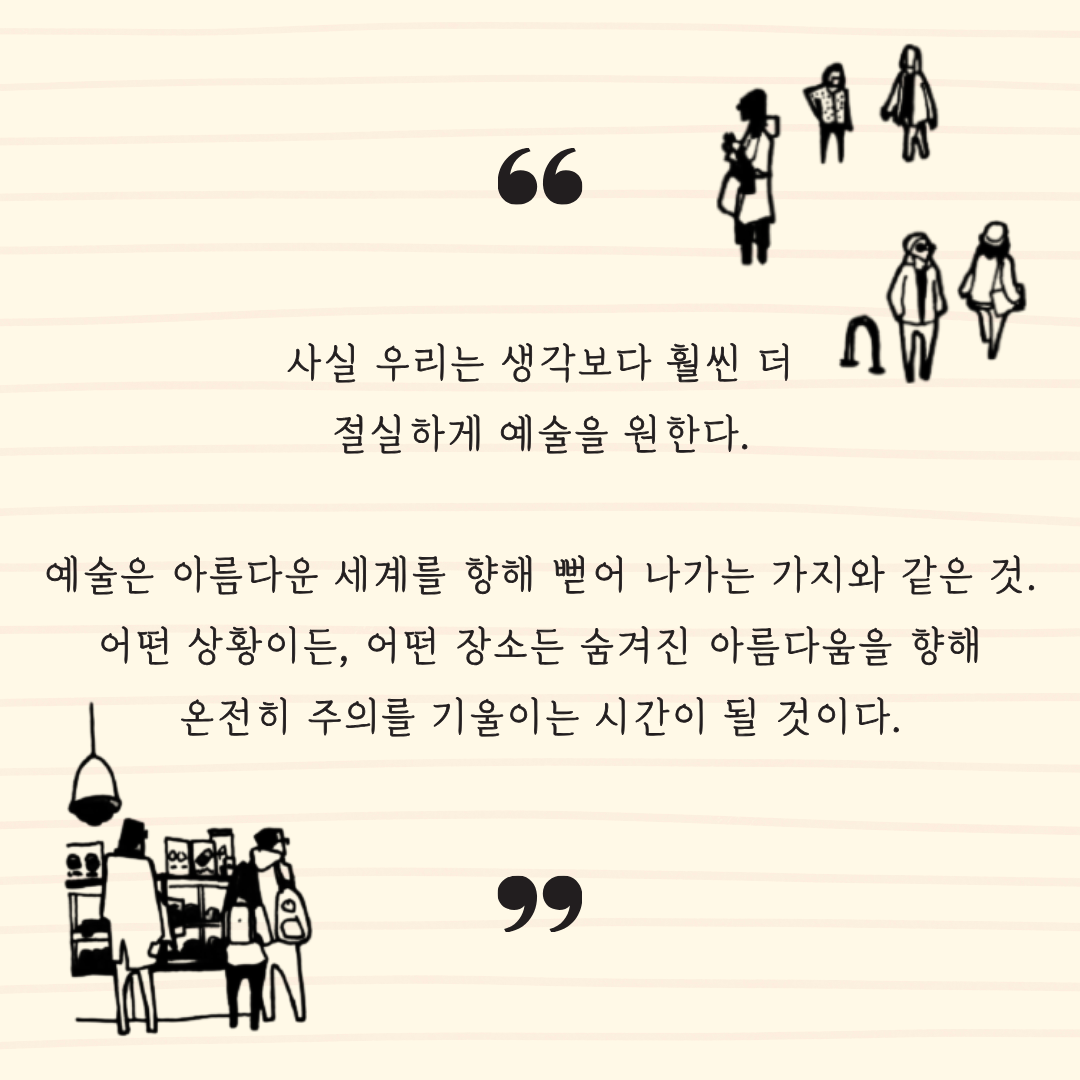 “
사실 우리는 생각보다 훨씬 더
절실하게 예술을 원한다.
예술은 아름다운 세계를 향해 뻗어 나가는 가지와 같은 것.
어떤 상황이든, 어떤 장소든 숨겨진 아름다움을 향해
온전히 주의를 기울이는 시간이 될 것이다.
”